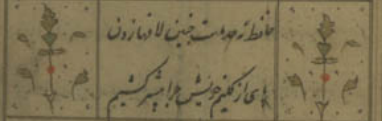 حافظ نه حد ماست چنین لافها زدن
پای از گلیم خویش چرا بیشتر کشیم